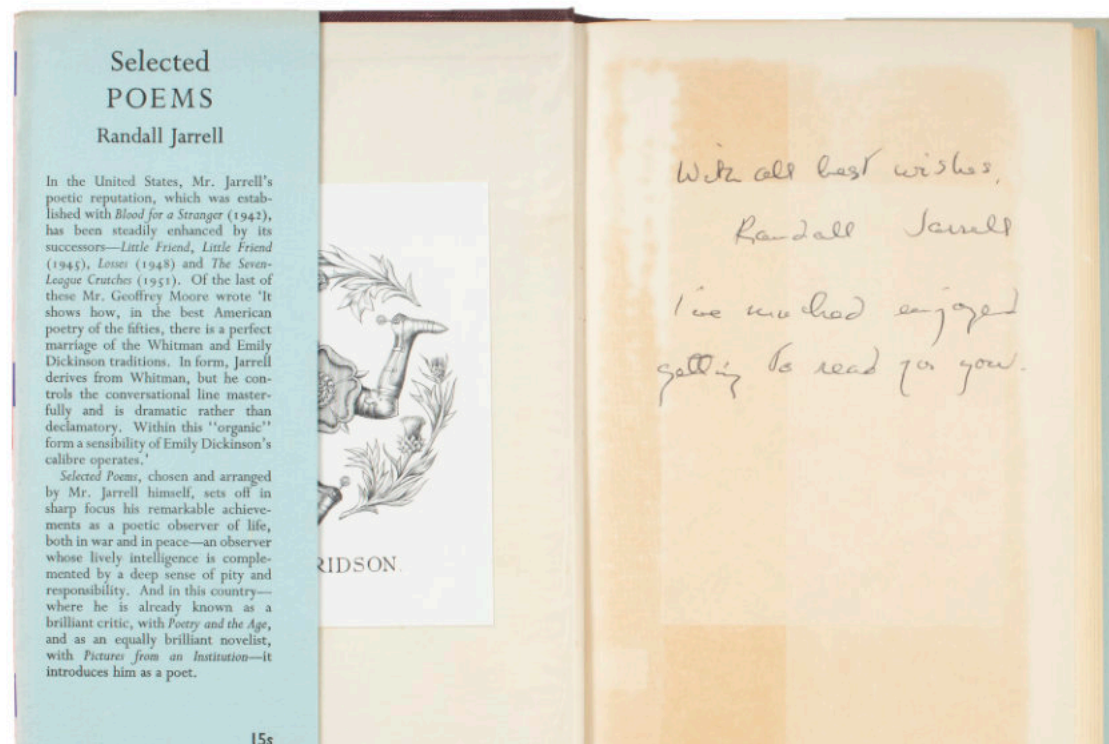 Selected
POEMS
Randall Jarrell
In the United States, Mr. Jarrell's
poetic reputation, which was estab-
lished with Blood for a Stranger (1942),
has been steadily enhanced by its
successors—Little Friend, Little Friend
(1945), Losses (1948) and The Seven-
League Crutches (1951). Of the last of
these Mr. Geoffrey Moore wrote 'It
shows how, in the best American
poetry of the fifties, there is a perfect
marriage of the Whitman and Emily
Dickinson traditions. In form, Jarrell
derives from Whitman, but he con-
trols the conversational line master-
fully and is dramatic rather than
declamatory. Within this "organic"
form a sensibility of Emily Dickinson's
calibre operates.'
Selected Poems, chosen and arranged
by Mr. Jarrell himself, sets off in
sharp focus his remarkable achieve-
ments as a poetic observer of life,
both in war and in peace—an observer
whose lively intelligence is comple-
mented by a deep sense of pity and
responsibility. And in this country—
where he is already known as a
brilliant critic, with Poetry and the Age,
and as an equally brilliant novelist,
with Pictures from an Institution—it
introduces him as a poet.
15s
RIDSON.
With all best wishes,
Randall Jarrell
I've enjoyed
getting to read for you.